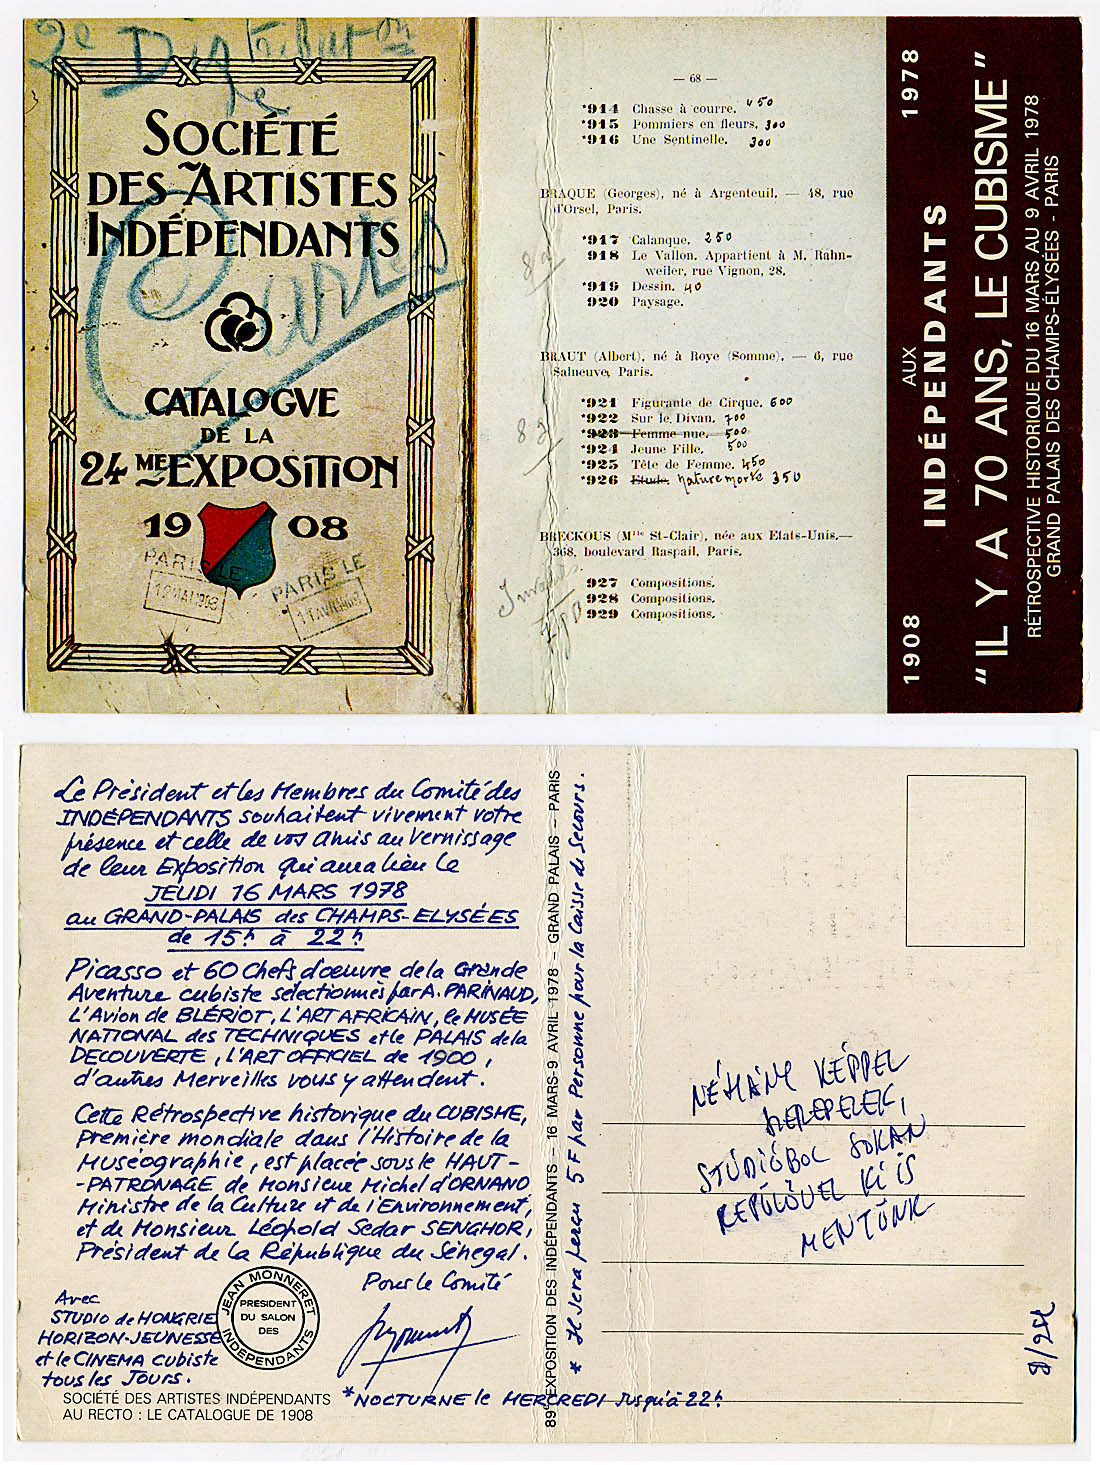 2e Distribution
SOCIÉTÉ
DES ARTISTES
INDÉPENDANTS
CATALOGVE
DE LA
24ME EXPOSITION
1908
PARIS LE
PARIS LE
— 68 —
*914 Chasse à courre. 450
*915 Pommiers en fleurs. 300
*916 Une Sentinelle. 300
BRAQUE (Georges), né à Argenteuil. — 48, rue
d'Orsel, Paris.
*917 Calanque. 250
918 Le Vallon. Appartient à M. Rahn-
weiler, rue Vignon, 28.
*919 Dessin. 40
920 Paysage.
BRAUT (Albert), né à Roye (Somme). — 6, rue
Salneuve, Paris.
*921 Figurante de Cirque. 600
*922 Sur le Divan. 700
*923 Femme nue. 500
*924 Jeune Fille. 500
*925 Tête de Femme. 450
*926 Etude. nature morte 350
BRECKOUS (Mlle St-Clair), née aux Etats-Unis.—
368, boulevard Raspail, Paris.
927 Compositions.
928 Compositions.
929 Compositions.
1908 AUX 1978
INDÉPENDANTS
"IL Y A 70 ANS, LE CUBISME"
RÉTROSPECTIVE HISTORIQUE DU 16 MARS AU 9 AVRIL 1978
GRAND PALAIS DES CHAMPS-ÉLYSÉES - PARIS
Le Président et les Membres du Comité des
INDÉPENDANTS souhaitent vivement votre
présence et celle de vos Amis au Vernissage
de leur Exposition qui aura lieu le
JEUDI 16 MARS 1978
au GRAND-PALAIS des CHAMPS-ELYSÉES
de 15h à 22h
Picasso et 60 Chefs d'oeuvre de la Grande
Aventure cubiste sélectionnés par A. PARINAUD,
L'Avion de BLÉRIOT, L'ART AFRICAIN, le MUSÉE
NATIONAL des TECHNIQUES et le PALAIS de la
DECOUVERTE, L'ART OFFICIEL de 1900,
d'autres Merveilles vous y attendent.
Cette Rétrospective historique du CUBISME,
première mondiale dans l'Histoire de la
Muséographie, est placée sous le HAUT-
-PATRONAGE de Monsieur Michel d'ORNANO
Ministre de la Culture et de l'Environnement,
et de Monsieur Léopold Sedar SENGHOR,
Président de la République du Sénegal.
Pour le Comité
Avec
STUDIO de HONGRIE
HORIZON-JEUNESSE
et le CINEMA cubiste
tous les Jours.
JEAN MONNERET
PRESIDENT
DU SALON
DES
INDÉPENDANTS
SOCIÉTÉ DES ARTISTES INDÉPENDANTS
AU RECTO : LE CATALOGUE DE 1908
*NOCTURNE le MERCREDI Jusqu'à 22h
89e EXPOSITION DES INDÉPENDANTS - 16 MARS-9 AVRIL 1978 - GRAND PALAIS - PARIS
* Il sera perçu 5F par Personne pour la Caisse de Secours.
NÉHÁNY KÉPPEL
SZEREPELEK,
STÚDIÓBOL SOKAN
REPÜLŐVEL KI IS
MENTÜNK